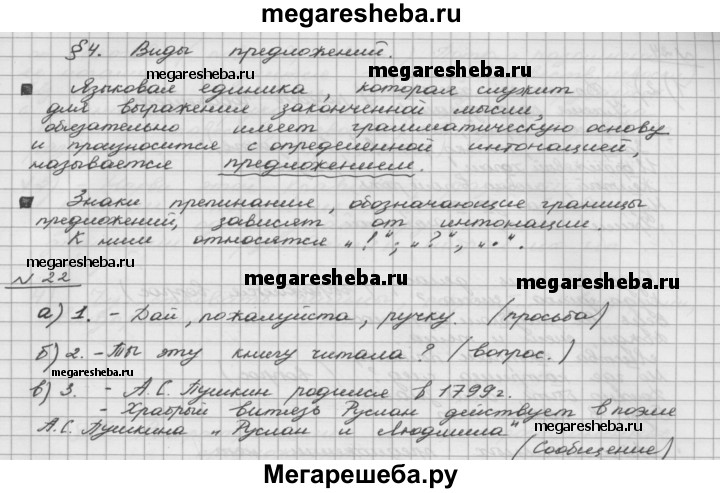 megaresheba.ru
§4. Виды предложений.
megaresheba.ru megaresheba.ru
Языковая единика, которая служит
для выражения законченной мысли,
обязательно имеет грамматическую основу
и произносится с определенной интонацией,
называется предложением.
megaresheba.ru
Знаки препинания, обозначающие границы
предложений, зависят от интонации.
К ним относятся „!“; „?“, „.“.
megaresheba.ru megaresheba.ru
N 22
а) 1. - Дай, пожалуйста, ручку. (просьба)
б) 2. - Ты эту книгу читала? (вопрос.)
megaresheba.ru megaresheba.ru
в) 3. - А.С. Пушкин родился в 1799г.
- Храбрый витязь Руслан действует в поэме
А.С. Пушкина „Руслан и Людмила“
(Сообщение)
Мегарешеба.ру